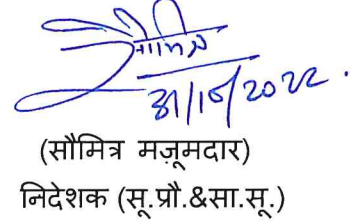 सौमित्र
31/10/2022.
(सौमित्र मज़ूमदार)
निदेशक (सू.प्रौ.&सा.सू.)